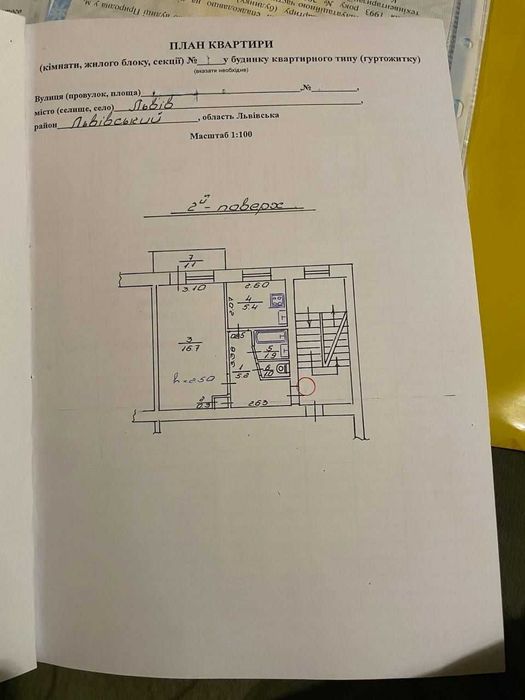 ПЛАН КВАРТИРИ
(кімнати, жилого блоку, секції) № у будинку квартирного типу (гуртожитку)
(вказати необхідне)
Вулиця (провулок, площа) ,№ ,
місто (селище, село) Львів ,
район Львівський , область Львівська
Масштаб 1:100
2й - поверх
7
1.1
3.10
2.60
4
5.4
2.07
3
16.7
0.85
5
1.9
1
5.8
6
1.0
h=2.50
2
0.3
2.63